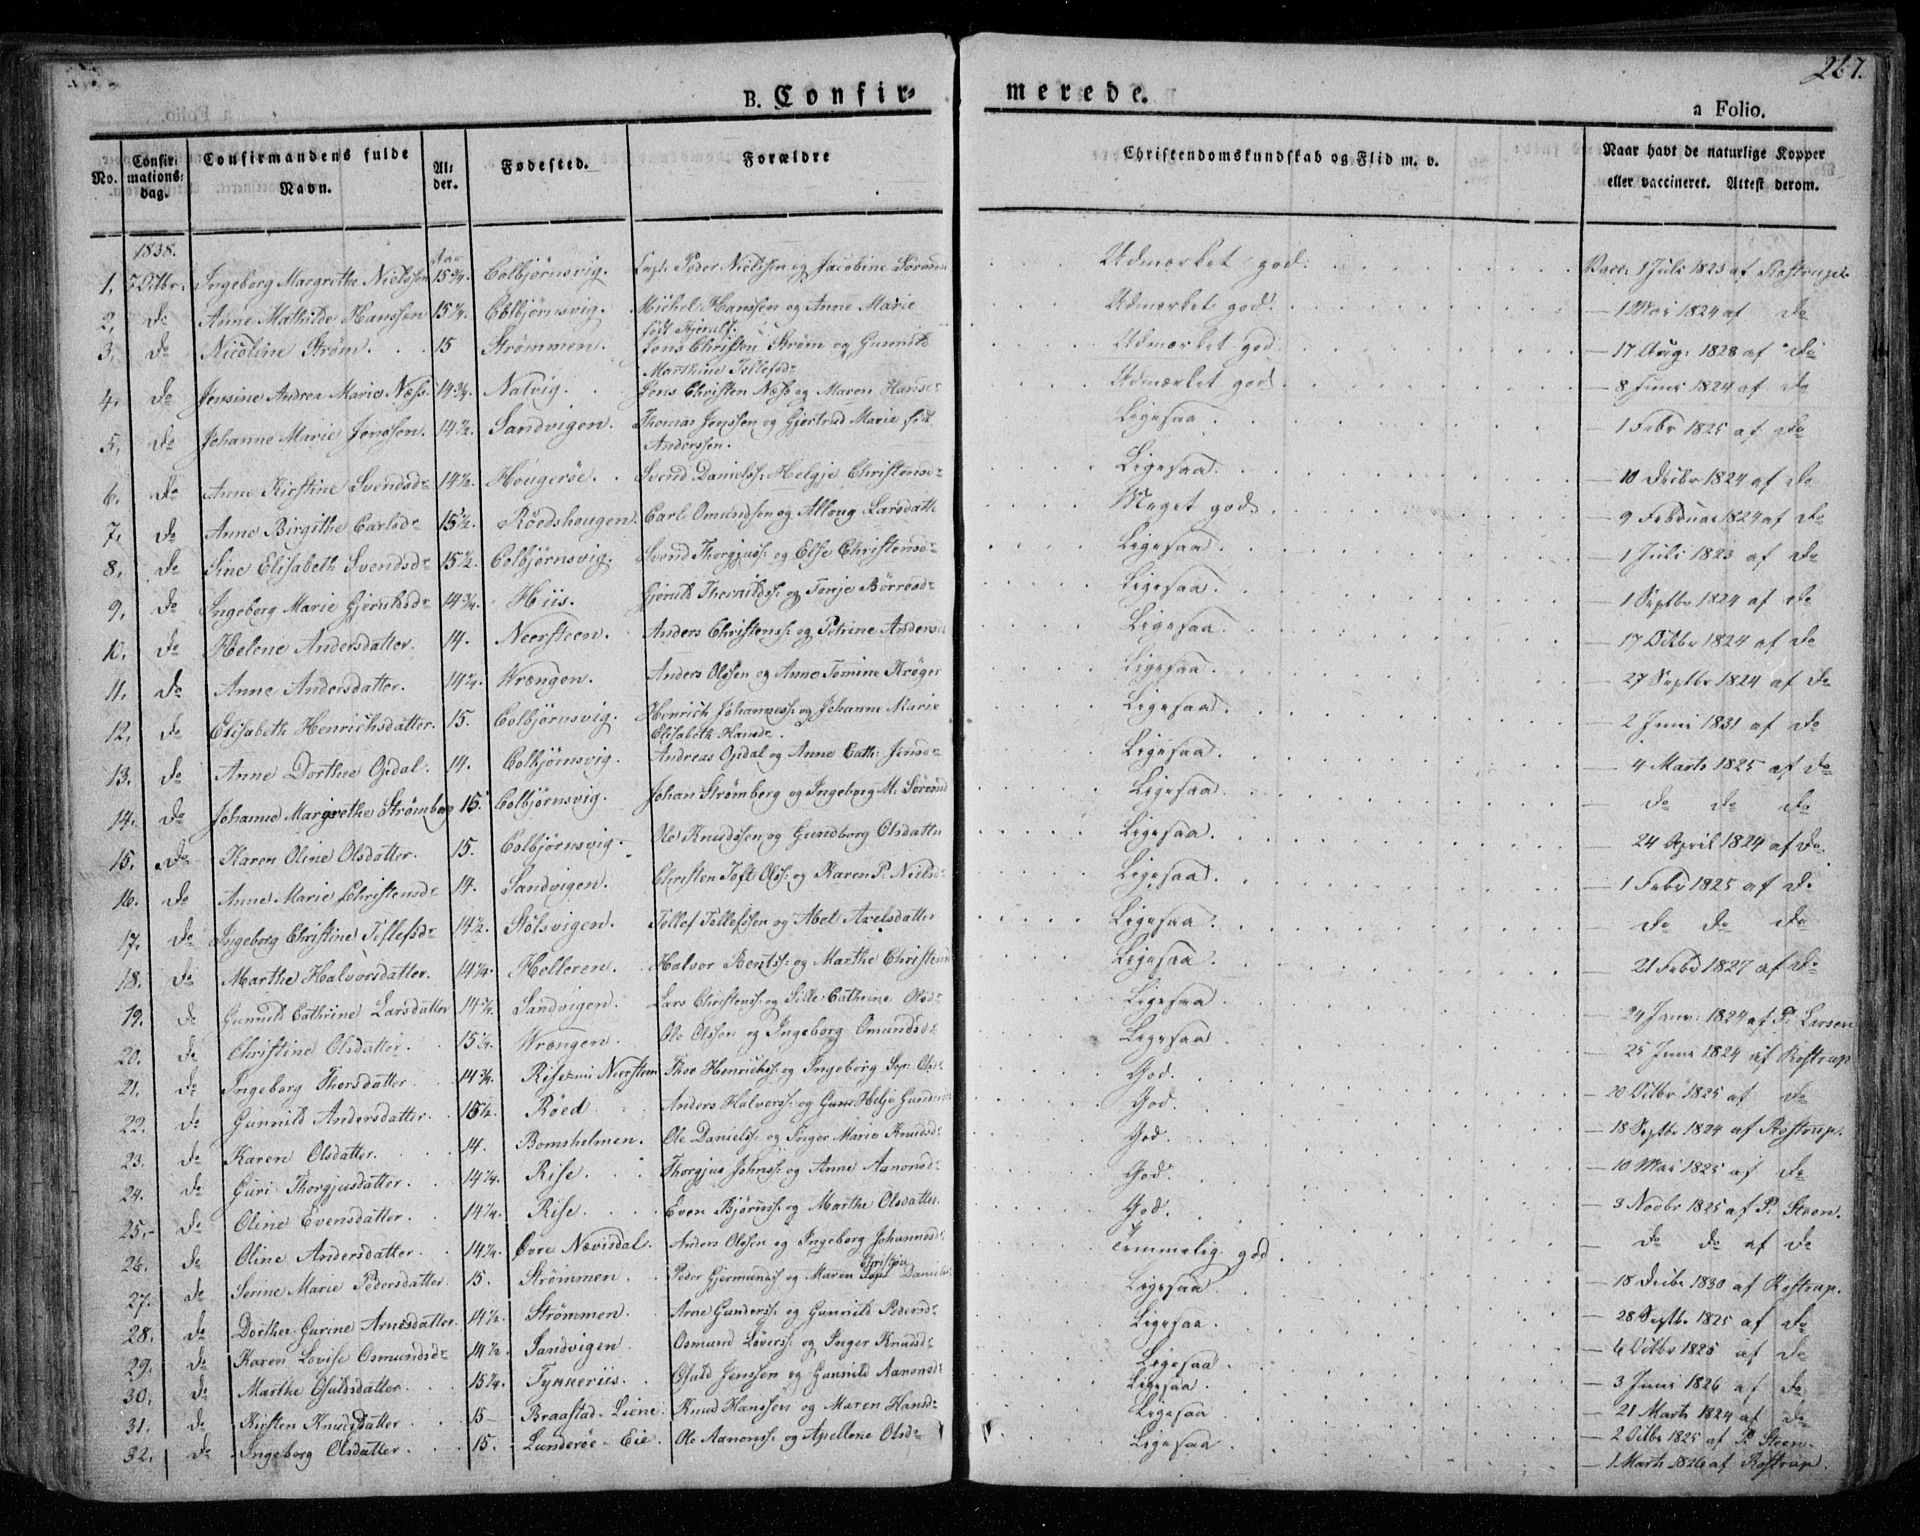 267.
B. Confir- merede.
a Folio.
No. Confirmations: dag. Confirmandens fulde Navn. Alder. Fødested. Forældre Christendomskundskab og Flid m. v. Naar havt de naturlige Kopper eller vaccineret. Attest derom.
1838. Aar
1. 7 Octbr. Ingeborg Margrethe Nielssen 15 3/4. Colbjørnsvig. Capt: Peder Nielssen og Jacobine Sørensen Udmærket god. Vacc: 1 Juli 1823 af Rostrup.
2. do Anne Mathilde Hanssen 15 1/4. Colbjørnsvig. Michel Hanssen og Anne Marie født Udmærket god. — 1 Mai 1824 af do
3. do Nicoline Strøm. 15 Strømmen. Jens Christen Strøm og Gunnild Marthine Tellefsdr Udmærket god. — 17 Aug: 1828 af do
4. do Jensine Andrea Marie Næss. 14 3/4. Natvig. Jens Christen Næss og Maren Hansdr Udmærket god. — 8 Juni 1824 af do
5. do Johanne Marie Jenssen. 14 1/2. Sandvigen. Thomas Jenssen og Gjertrud Marie født Anderssen. Ligesaa. — 1 Febr 1825 af do
6. do Anne Kirstine Svendsdr 14 1/2. Havgerøe. Svend Danielss: Helgje Christensdr Ligesaa. — 10 Decbr 1824 af do
7. do Anne Birgithe Carlsdr 15 1/2. Røedshougen. Carl Omundssen og Alloug Larsdatter Meget god. — 9 Februar 1824 af do
8. do Sine Elisabeth Svendsdr 15 1/2. Colbjørnsvig. Svend Thorgjuss: og Else Christensdr Ligesaa. — 1 Juli 1823 af do
9. do Ingeborg Marie Gjeruldsdr 14 3/4. Hiis. Gjeruld Thorvildss: og Tonje Børresdr Ligesaa. — 1 Septbr 1824 af do
10. do Helene Andersdatter. 14. Neersteen. Anders Christenss: og Petrine Andersdr Ligesaa. — 17 Octbr 1824 af do
11. do Anne Andersdatter. 14 1/4. Vrængen. Anders Olssen og Anne Tomine Krøger Ligesaa. — 27 Septbr 1824 af do
12. do Elisabeth Henrichsdatter. 15. Colbjørnsvig. Henrich Johanness: og Johanne Marie Elisabeth Hansdr. Ligesaa. — 2 Juni 1831 af do
13. do Anne Dorthea Opdal. 14. Colbjørnsvig. Andreas Opdal og Anne Cath: Jensdr Ligesaa. — 4 Marts 1825 af do
14. do Johanne Margrethe Strømberg 15. Colbjørnsvig. Johan Strømberg og Ingeborg M. Sørensd Ligesaa. — do do do
15. do Karen Oline Olsdatter. 15. Colbjørnsvig. Ole Knudssen og Gundborg Olsdatter Ligesaa. — 24 April 1824 af do
16. do Anne Marie Christensdr 14. Sandvigen. Christen Toft Olss: og Karen P: Nielsdr Ligesaa. — 1 Febr 1825 af do
17. do Ingeborg Christine Tellefsdr 14 1/2. Stølsvigen. Tellef Tellefssen og Abel Axelsdatter Ligesaa. — do do do
18. do Marthe Halvorsdatter. 14 1/4. Helleren. Halvor Bentss: og Marthe Christensd Ligesaa. — 21 Febr 1827 af do
19. do Gunnild Cathrine Larsdatter 14 3/4. Sandvigen. Lars Christenss: og Sille Cathrine Olsdr Ligesaa. — 24 Janr. 1824 af P. Larsen
20. do Christine Olsdatter. 15 1/4. Vrængen. Ole Olssen og Ingeborg Omundsdr Ligesaa. — 25 Juni 1824 af Rostrup
21. do Ingeborg Thorsdatter 14 3/4. Rise Neersteen Thor Henrichss: og Ingeborg Sop: Olsdr God. — 20 Octbr 1825 af do
22. do Gunnild Andersdatter. 15 1/2. Røed Anders Halvorss: og Helje Gundersd God. — 18 Septbr 1824 af Rostrup.
23. do Karen Olsdatter. 14. Bomsholmen. Ole Danielss: og Inger Marie Knudsdr God. — 10 Mai 1825 af do
24. do Guri Thorgjusdatter. 14 1/4. Rise. Thorgjus Johnss: og Anne Aanonsdr God. — 3 Novbr 1825 af P. Steen.
25. do Oline Evensdatter. 14 1/4. Rise. Even Bjørnss: og Marthe Olsdatter God. — do do af do
26. do Oline Andersdatter 14 1/4. Øvre Nævisdal. Anders Olssen og Ingeborg Johannesdr Temmelig god. — 18 Decbr 1830 af Rostrup.
27. do Serine Marie Pedersdatter. 15. Strømmen. Peder Gjermundss: og Maren Christine Danielsd Ligesaa. — 28 Septbr 1825 af do
28. do Dorthea Gurine Arnesdatter. 14 1/2. Strømmen. Arne Gunderss: og Gunnild Pedersdr Ligesaa. — 6 Octbr 1825 af do
29. do Karen Lovise Osmundsdr 14 1/2. Sandvigen. Osmund Løverss: og Inger Knudsdr Ligesaa. — 3 Juni 1826 af do
30. do Marthe Osuldsdatter. 15 1/4. Tykkeriis. Osuld Jenssen og Gunnild Aanonsdr Ligesaa. — 21 Marts 1824 af do
31. do Kirsten Knudsdatter 15 — Braastad-Liene. Knud Hanssen og Maren Hansdr Ligesaa. — 2 Octbr 1825 af P. Steen.
32. do Ingeborg Olsdatter. 15. Lunderøe-Eie. Ole Aanonss: og Apellone Olsdr Ligesaa. — 1 Marts 1826 af Rostrup.